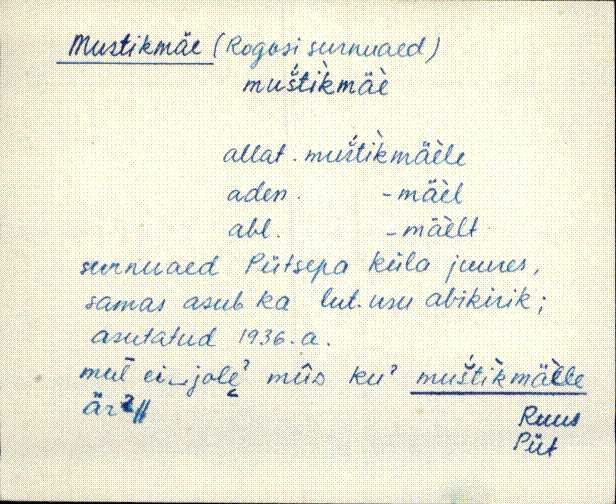 Mustikmäe (Rogosi surnuaed)
muśtìkmäè
allat. muśtìkmäèle
aden. -mäèl
abl. -mäèlt
surnuaed Pütsepa küla juures,
samas asub ka lut. usu abikirik;
asutatud 1936. a.
mul ei‿jole̮ʔ mûs kuʔ muśtìkmäèle
ärʔ//
Ruus
Püt